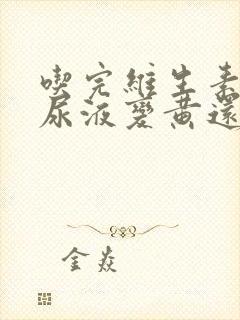 喫完維生素
尿液變黃還
金焱